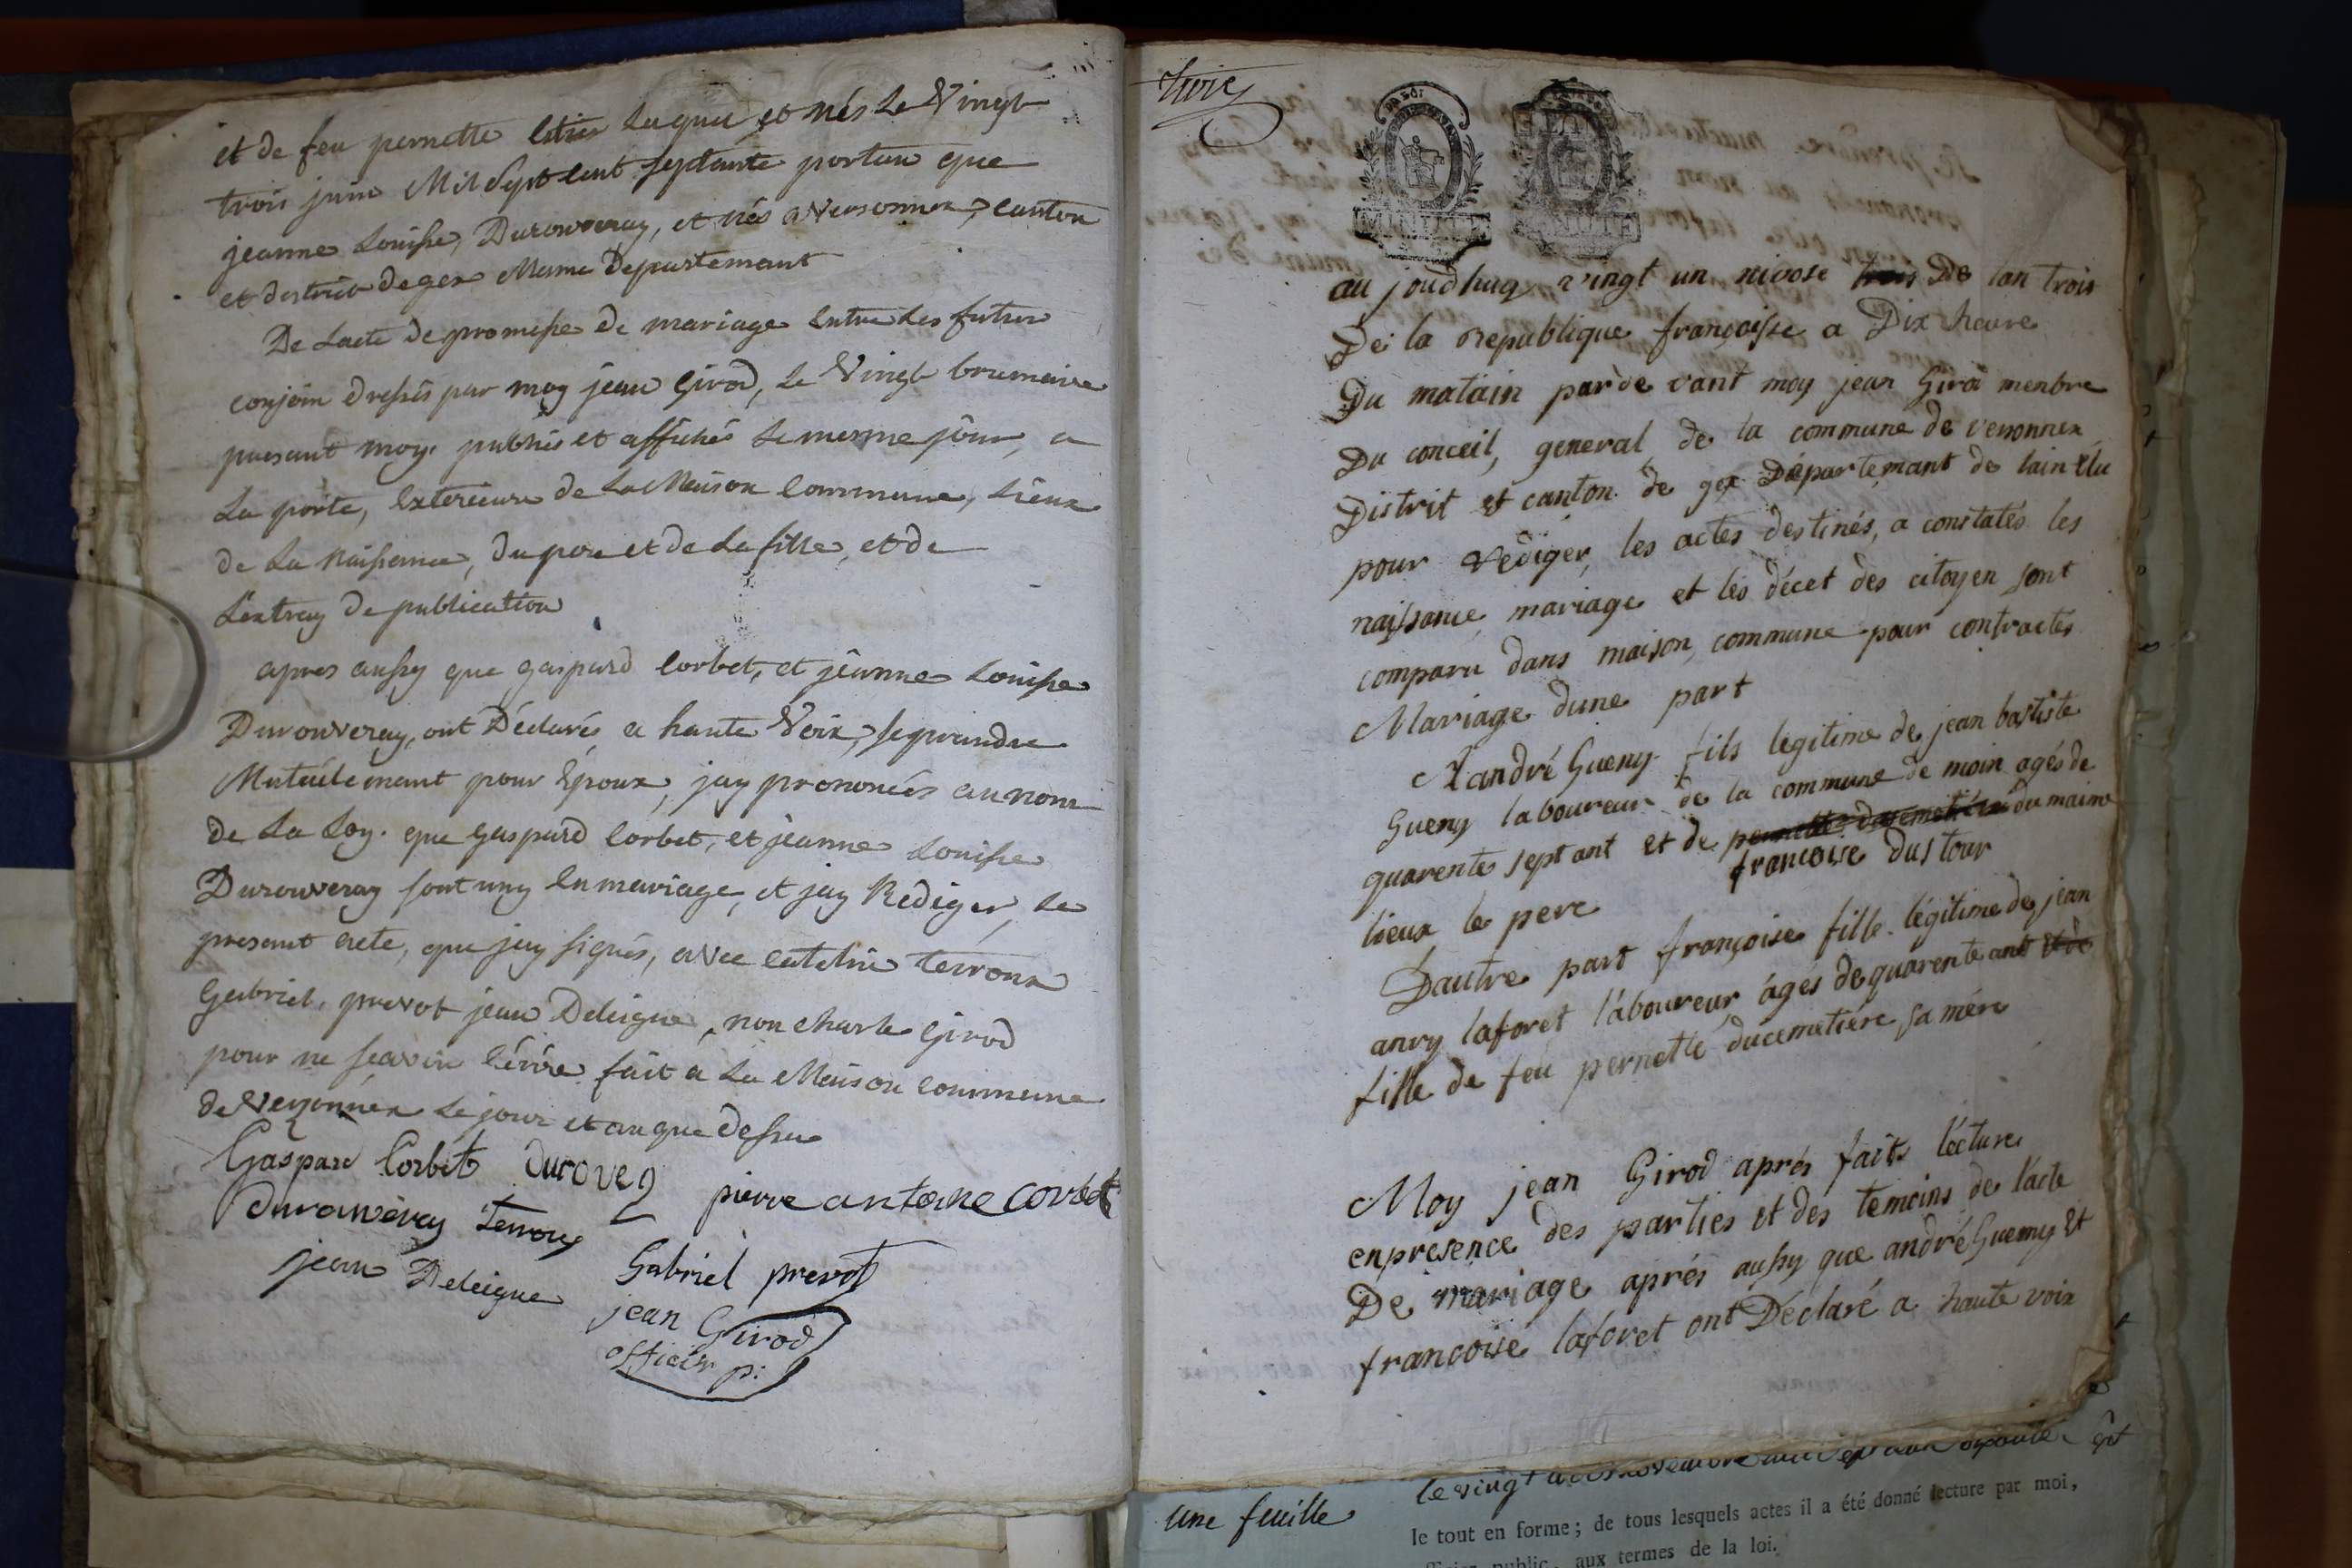 et de feu pernette et nés le Vingt
trois juin Mil Sept Cent Septante portan que
jeanne Louisse, Durouveray, et nés a Versonnex, canton
et destrict de gex Mesme Departemant
De Lacte de promesse de mariage Entre Les futur
conjoin dressés par moy jean Girod, Le Vingt brumaire
presant moy. publiés et affichés Le mesme jour, a
La porte, Exterieure de La Maison Commune, Lieux
de La Naissance, du pere et de La fille, et de
Lextray de publication
apres aussy que gaspard Corbet, et jeanne Louisse
Durouveray, ont Déclarés a haute Voix, se prendre
Mutuélemant pour Epoux, jay prononcés au nom
de La Loy. que gaspard Corbet, et jeanne Louisse
Durouveray sont uny En mariage, et jay Rediger, Le
presant acte, que jay signés, avec terroux
Gabriel, prevot jean Deleigue, non charle Girod
pour ne scavoir Cérire fait a La Maison Commune
de Versonnex Le jour et an que dessu
Gaspard Corbet durovey pierre antoine corbet
Durouveray terroux
jean Deleigue Gabriel prevot
jean Girod
officier p:
trois
au joudhuy vingt un nivose De lan trois
De la republique françoisse a Dix heure
Du matain parde vant moy jean Giro menbre
Du conceil, general de la commune de versonnex
Distrit et canton de gex Départemant de lain Elu
pour rediger, les actes destinés, a constatés les
naissance mariage et les décet des citoyen sont
comparu dans maison commune pour contractés
Mariage dune part
andré Gueny fils legitime de jean bastiste
Gueny laboureur de la commune de moin agés de
quarente sept ant et de du maime
francoise dustour
lieux le pere
Dautre part françoise fille légitime de jean
anry laforet laboureur, âgés de quarente ant et de
fille de feu pernette ducemetiére sa mére
Moy jean Girod aprés faits lécture
enpresence des parties et des temoins de lacte
De mariage aprés aussy que andré Guemy et
francoise laforet ont Déclaré a haute voix
une feuille
le vingt
le tout en forme; de tous lesquels actes il a été donné lecture par moi,
public, aux termes de la loi.